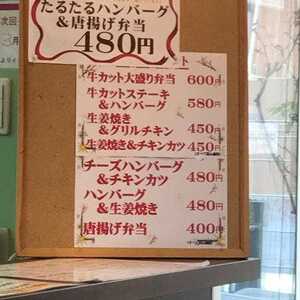 たるたるハンバーグ
&唐揚げ弁当
480円
牛カット大盛り弁当 600円
牛カットステーキ
&ハンバーグ 580円
生姜焼き
&グリルチキン 450円
生姜焼き&チキンカツ 450円
チーズハンバーグ
&チキンカツ 480円
ハンバーグ
&生姜焼き 480円
唐揚げ弁当 400円